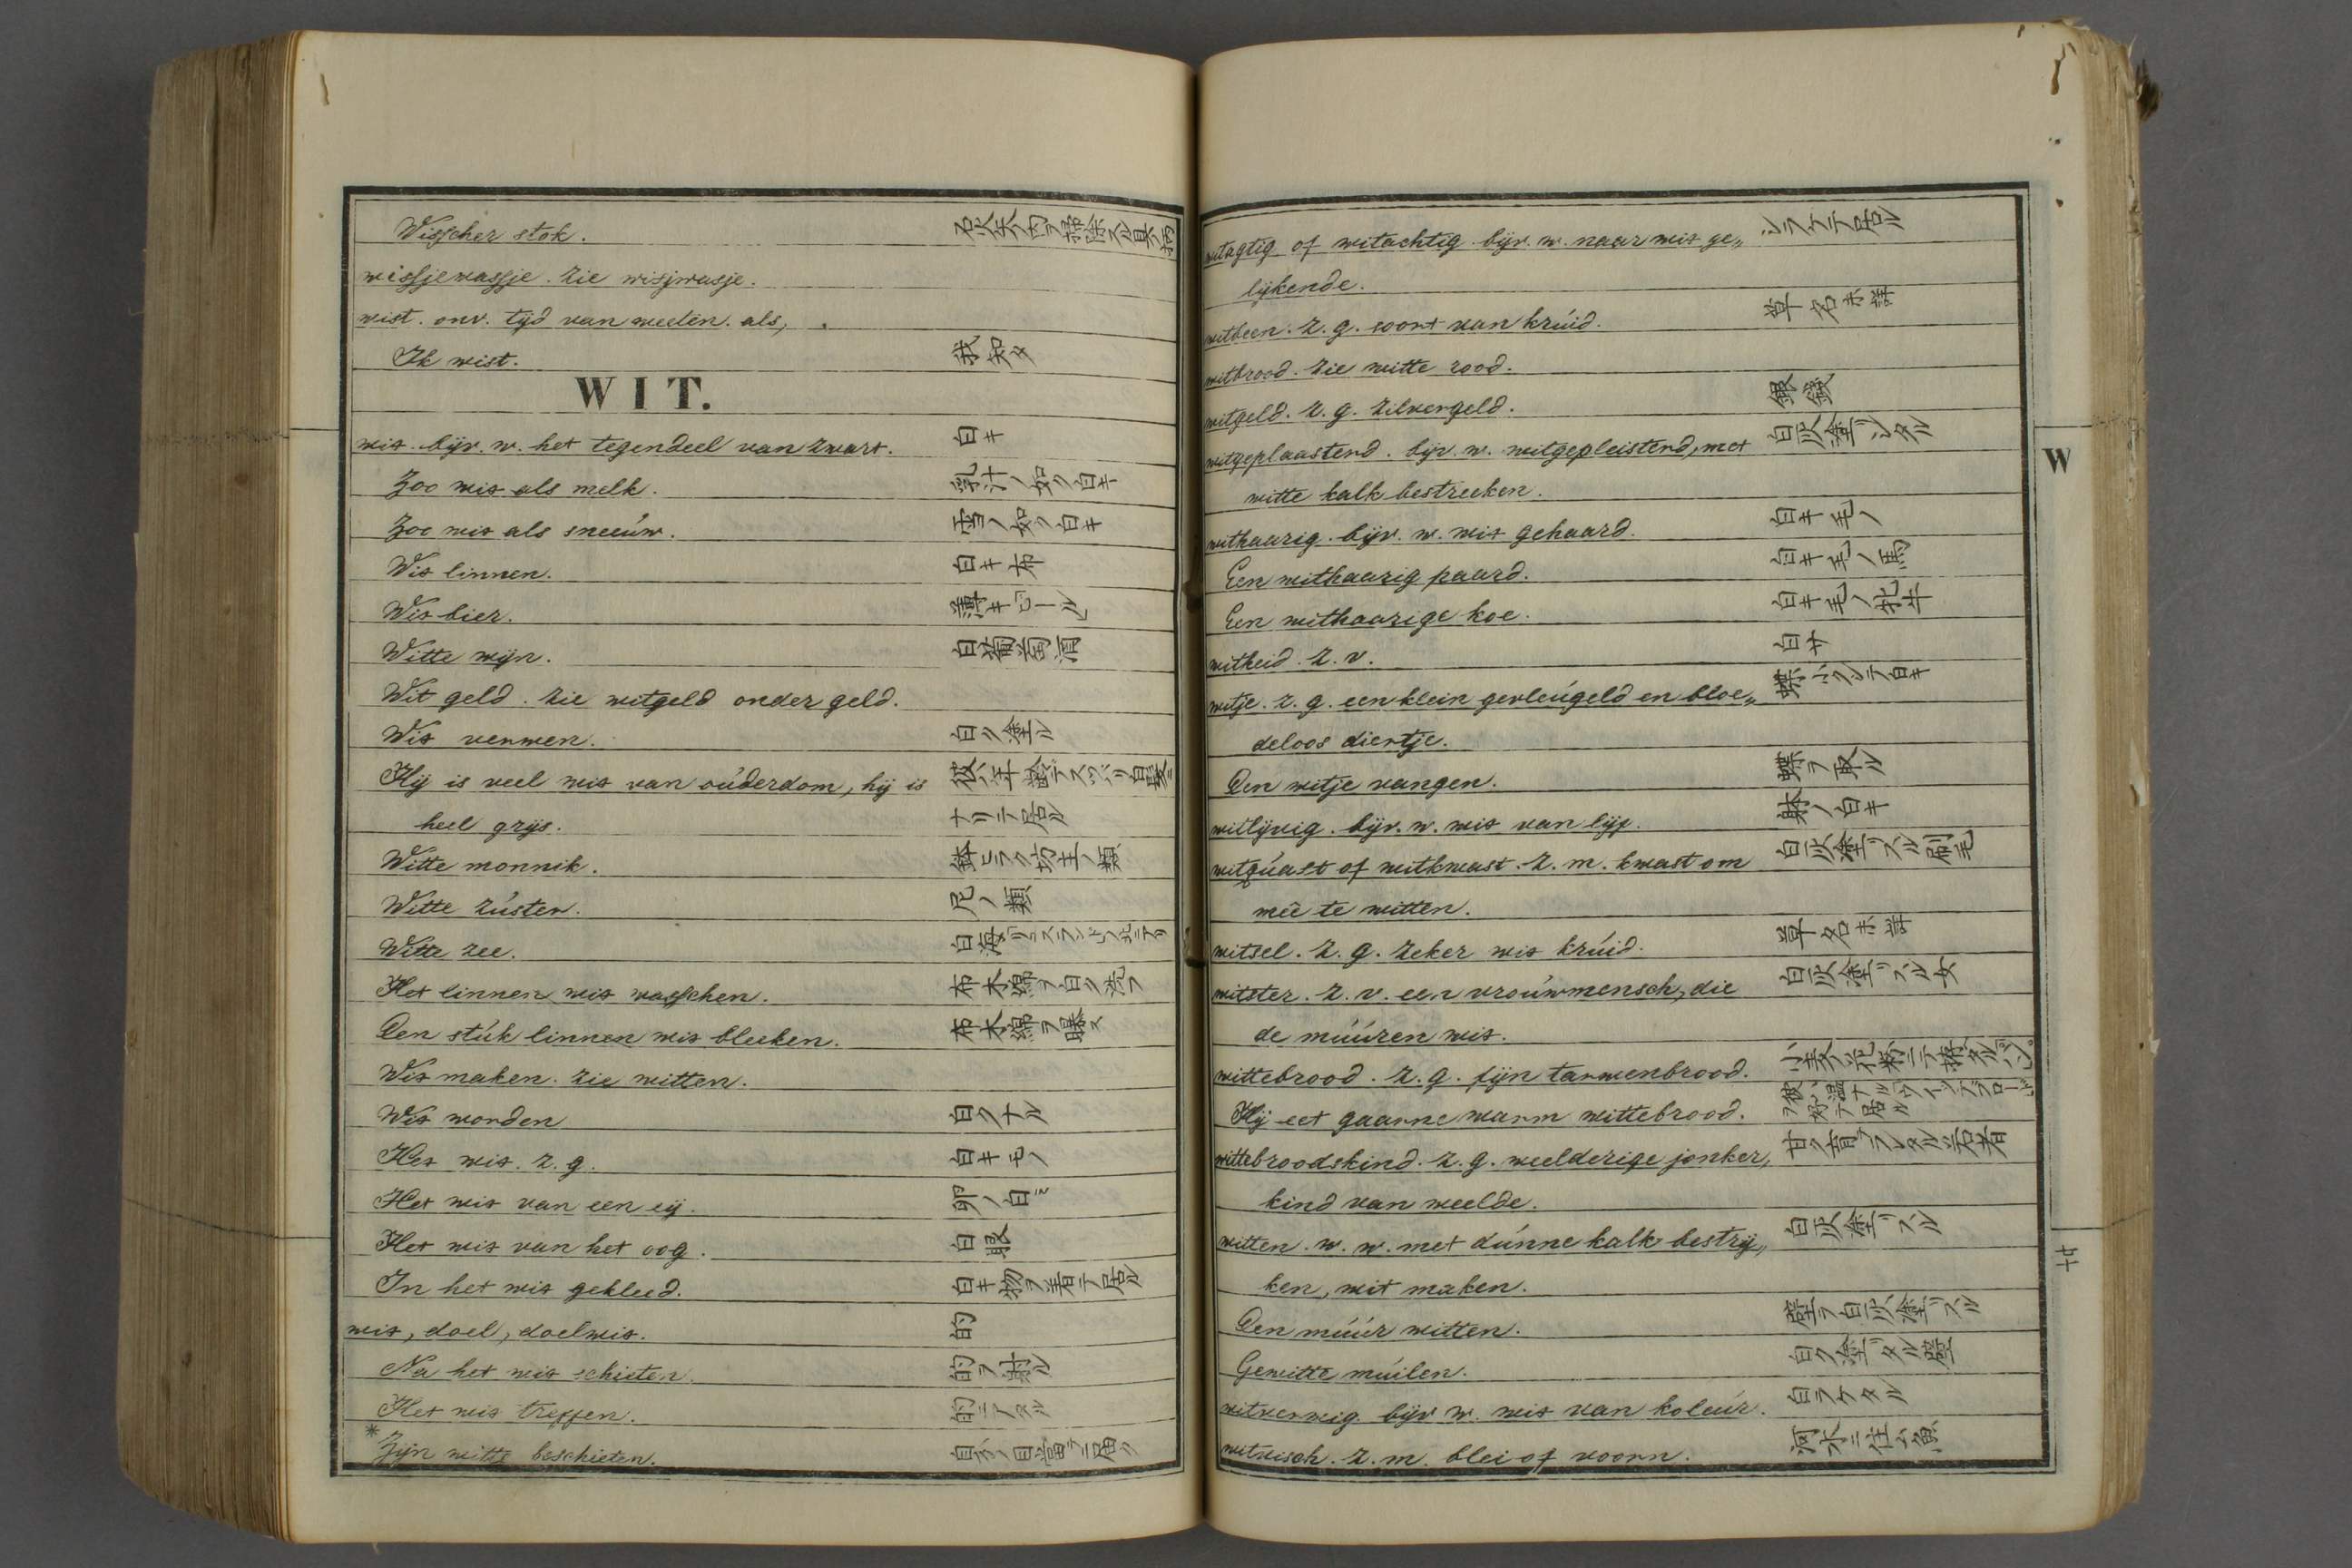 Wisscher stok. 石火矢ノ内ヲ掃除スル具ノ柄
wissjewassje. zie wisjwasje.
wist. onv. tijd van weeten. als,
Ik wist. 我知タ
WIT.
wit. bijv. w. het tegendeel van zwart. 白キ
Zoo wit als melk. 乳汁ノ如ク白キ
Zoo wit als sneeúw. 雪ノ如ク白キ
Wit linnen. 白キ布
Wit bier. 薄キ「ビール」
Witte wijn. 白葡萄酒
Wit geld. zie witgeld onder geld.
Wit verwen. 白ク塗ル
Hij is veel wit van oúderdom, hij is 彼ハ年齢デスツパリ白髪ニ
heel grijs. ナリテ居ル
Witte monnik. 坊主ノ類
Witte zúster. 尼ノ類
Witte zee. 白海
Het linnen wit wasschen. 布木綿ヲ白ク洗フ
Een stúk linnen wit bleeken. 布木綿ヲ曝ス
Wit maken. zie witten.
Wit worden 白クナル
Het wit. z. g. 白キモノ
Het wit van een eij. 卵ノ白ミ
Het wit van het oog. 白眼
In het wit gekleed. 白キ物ヲ着テ居ル
wit, doel, doelwit. 的
Na het wit schieten. 的ヲ射ル
Het wit treffen. 的ニアタル
* Zijn witte beschieten. 自分ノ目當ニ届ク
witagtig of witachtig. bijv. w. naar wit ge„ シラケテ居ル
lijkende.
witbeen. z. g. soort van krúid. 草ノ名未詳
witbrood. zie witte rood.
witgeld. z. g. zilvergeld. 銀錢
witgeplaasterd. bijv. w. witgepleisterd, met 白灰塗リシタル
witte kalk bestreeken.
withaarig. bijv. w. wit gehaard. 白キ毛ノ
Een withaarig paard. 白キ毛ノ馬
Een withaarige koe. 白キ毛ノ牝牛
witheid. z. v. 白サ
witje. z. g. een klein gevleúgeld en bloe„ 蝶ノ小クシテ白キ
deloos diertje.
Een witje vangen. 蝶ヲ取ル
witlijvig. bijv. w. wit van lijf. 躰ノ白キ
witqúast of witkwast. z. m. kwast om 白灰塗リスル刷毛
meê te witten.
witsel. z. g. zeker wit krúid. 草ノ名未詳
witster. z. v. een vroúwmensch, die 白灰塗リスル女
de múúren wit.
wittebrood. z. g. fijn tarwenbrood. 小麦ノ花粉ニテ拵タル「パン」
Hij eet gaarne warm wittebrood. 彼ハ温ナル「ウィッテブロード」ヲ好テ居ル
wittebroodskind. z. g. weelderige jonker, 甘ク育テラレタル若者
kind van weelde.
witten. w. w. met dúnne kalk bestrij„ 白灰塗リスル
ken, wit maken.
Een múúr witten. 壁ヲ白灰塗リスル
Gewitte múilen. 白ク塗リタル壁
witverwig. bijv w. wit van koleúr. 白ラケタル
witvisch. z. m. blei of voorn. 河水ニ住ム魚
W